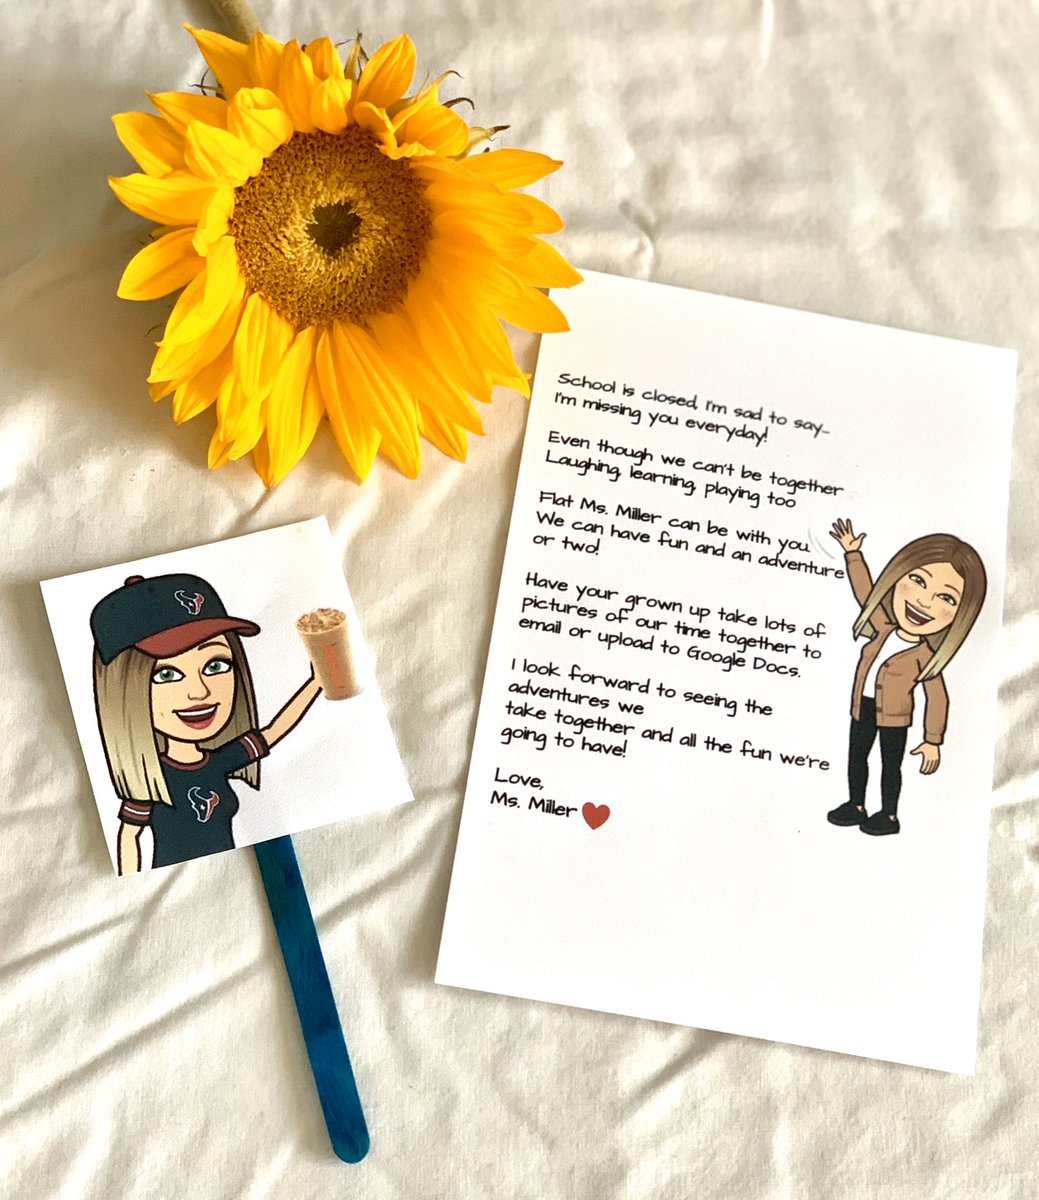 School is closed, I'm sad to say-
I'm missing you everyday!
Even though we can't be together
Laughing, learning, playing too
Flat Ms. Miller can be with you
We can have fun and an adventure
or two!
Have your grown up take lots of
pictures of our time together to
email or upload to Google Docs.
I look forward to seeing the
adventures we
take together and all the fun we're
going to have!
Love,
Ms. Miller